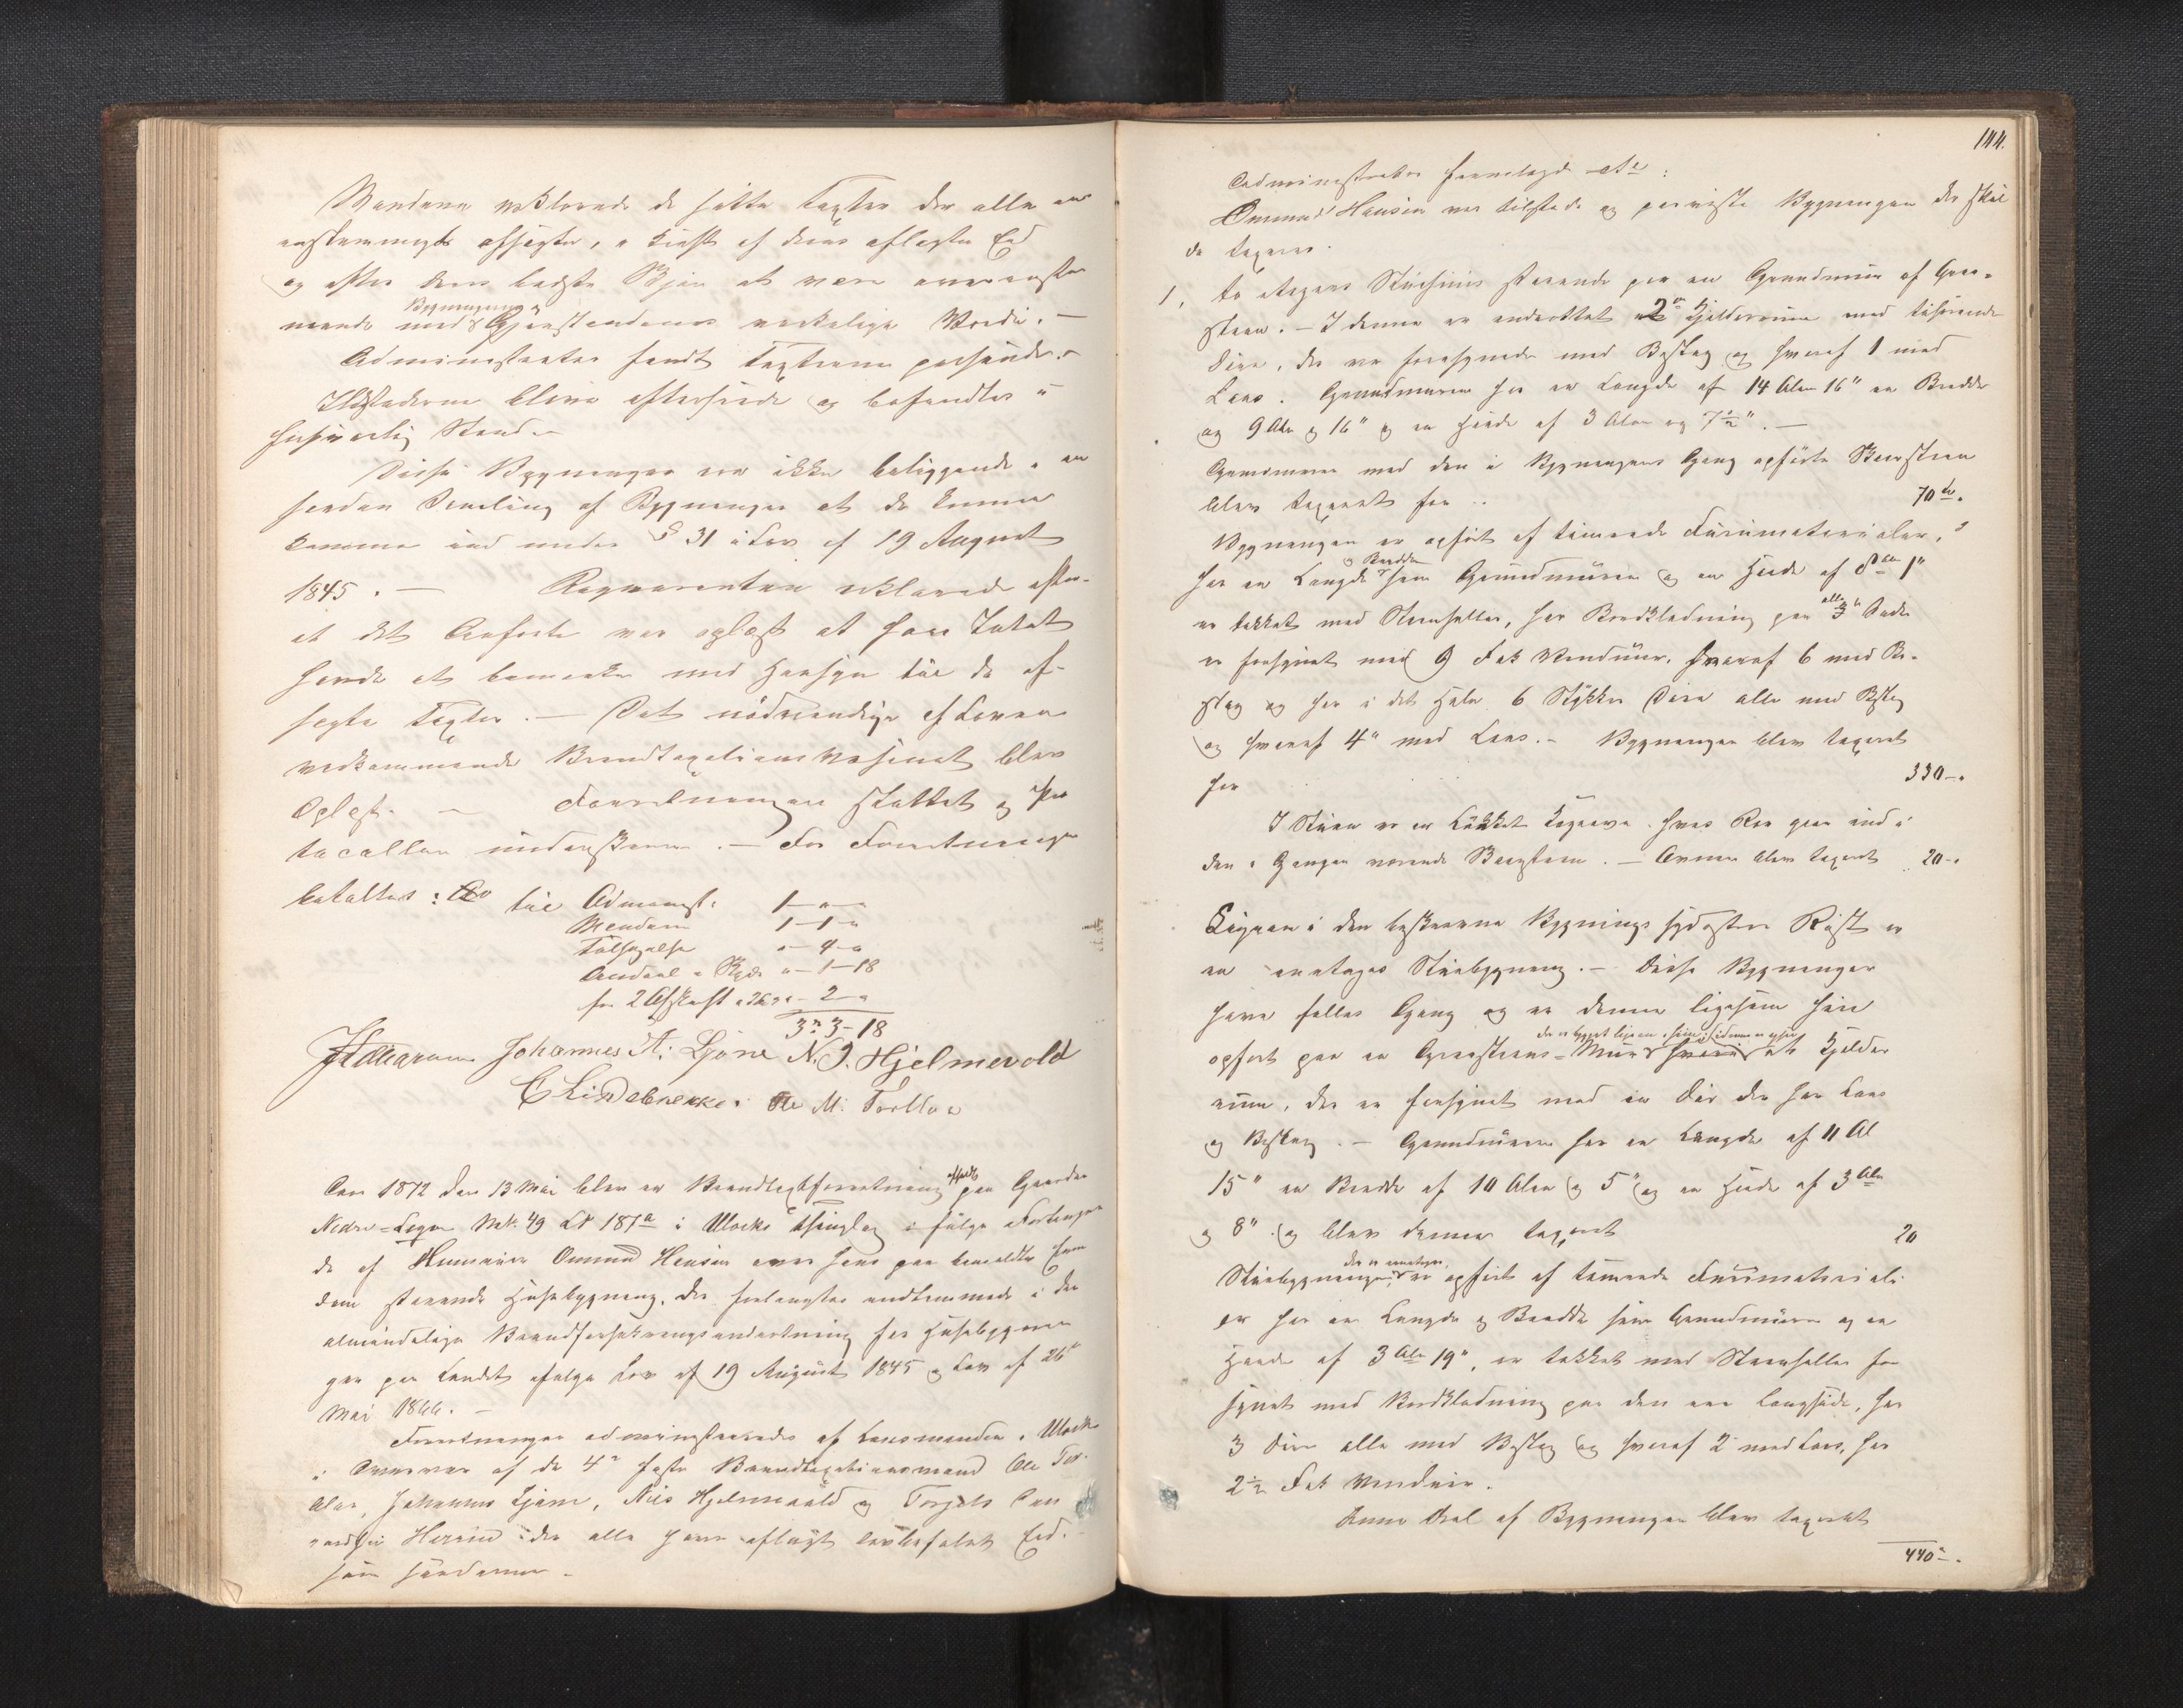 Mændene erklærede de satte Taxter der alle ere
eenstemmigt afsagte, i Kraft af deres aflagte Eed
og efter deres bedste Skjøn at være overensstem
mende med Bygningerne og Gjenstandenes virkelige Værdi. —
Administrator fandt Taxterne passende.
Ildstederne bleve efterseede og befandtes i
forsvarlig Stand. —
Disse Bygninger ere ikke beliggende i en
saadan Samling af Bygninger at de kunne
komme ind under § 31 i Lov af 19 August
1845. — Reqvirenten erklærede efter-
at det Anførte var oplæst at have Intet
havde at bemærke med Hensyn til de af-
sagte Taxter. — Det nødvendige af Loven
vedkommende Brandtaxationsvæsenet blev
Oplæst. — Forretningen sluttet og Pro
tocollen underskreven. — For Forretningen
betaltes: til Administ: 1 — " —
Mændene 1 — 1 — "
Tilsigelse " — 4 — "
" — 1 — 18
for 2 Afskrift " — 2 — "
3 " 3 — 18
Johannes A: Ljone N. J. Hjelmevold
Ole M:
Aar 1872 den 13 Mai blev en Brandtaxtforretning afholdt paa Gaarden
Nedre-Legre Mat. 49 Lb 187a i Thinglag i følge Forlangen
de af Huusmand Ommund Hansen over hans paa bemeldte Eien
dom staaende Huusbygning, der forlangtes indlemmede i den
almindelige Brandforsikringsindretning for Huusbygnin
ger paa Landet ifølge Lov af 19 August 1845 og Lov af 26de
Mai 1866. —
Forretningen administreredes af Lensmanden i
i Overvær af de 4re faste Brandtaxationsmænd Ole
Johannes Ljone, Nils Hjelmevold og Torgels
der alle have aflagt lovbefalet Eed
som saadanne. —
144.
Administrator fremlagde
Ommund Hansen var tilstede og paaviste Bygningen der skul
de taxeres.
1, to etages Stuehuus staaende paa en Grundmuur af Graa-
steen. — I denne er indrettet 2de Kjelderrum med tilhørende
Døre, der ere forsynede med Beslag og hvoraf 1 med
Laas. Grundmuren har en Længde af 14 Alen 16" en Bredde
og 9 Aln og 16" og en Høide af 3 Alen og 7½". —
Grundmuren med den i Bygningens Gang opførte Skorsteen
blev taxeret for 70 Sp.
Bygningen er opført af tømrede Furumaterialer,
har en Længde og Bredde som Grundmuren og en Høide af 8 Al 1"
er tækket med Steenheller, har Bordklædning paa alle 3 Sider
er forsynet med 9 Fak Vinduer, hvoraf 6 med Be-
slag og har i det Hele 6 Stykker Døre alle med Beslag
og hvoraf 4" med Laas. — Bygningen blev taxeret
for 330 —.
I Stuen er en Lukket Kogeovn hvis Rør gaar ind i
den i Gangen værende Skorsteen. — Ovnen blev taxeret 20 —.
Ligesaa i den beskrevne Bygnings sydøstre Røst er
en eenetages Stuebygning. — Disse Bygninger
have fælles Gang og er denne ligesom hiin
opført paa en Graasteens-Muur et Kjelder
rum, der er forsynet med en Dør der har Laas
og Beslag. — Grundmuren har en Længde af 11 Al
15" en Bredde af 10 Alen og 5" og en Høide af 3 Aln
og 8" og blev denne taxeret 20
Stuebygningen, der er eenetages, er opført af tømrede Furumateriali
er har en Længde og Bredde som Grundmuren og en
Høide af 3 Aln 19", er tækket med Steenheller for
synet med Bordklædning paa den ene Langside, har
3 Døre alle med Beslag og hvoraf 2 med Laas, har
2½ Fak Vinduer.
Denne Deel af Bygningen blev taxeret
440 —.